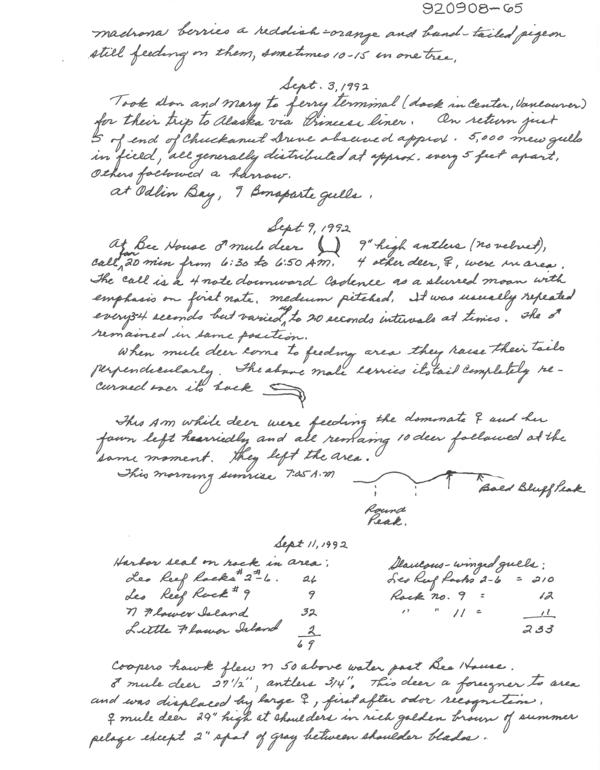 920908-65
madrona berries a reddish-orange and band-tailed pigeon
still feeding on them, sometimes 10-15 in one tree.
Sept. 3, 1992
Took Don and Mary to ferry terminal (dock in Center, Vancouver)
for their trip to Alaska via Princess liner. On return just
S of end of Chuckanut Drive observed approx. 5,000 mew gulls
in field, all generally distributed at approx. every 5 feet apart.
Others followed a harrow.
at Odlin Bay, 9 Bonaparte gulls.
Sept 9, 1992
At Bee House ♂ mule deer 9" high antlers (no velvet),
call for 20 min from 6:30 to 6:50 A.M. 4 other deer, ♀, were in area.
The call is a 4 note downward cadence as a slurred moan with
emphasis on first note, medium pitched. It was usually repeated
every 34 seconds but varied up to 20 seconds intervals at times. The ♂
remained in same position.
When mule deer come to feeding area they raise their tails
perpendicularly. The above male carries its tail completely re-
curved over its back
This AM while deer were feeding the dominate ♀ and her
fawn left hurriedly and all remaing 10 deer followed at the
same moment. They left the area.
This morning sunrise 7:05 A.M
Bald Bluff Peak
Round
Peak.
Sept 11, 1992
Harbor seal on rock in area:
Leo Reef Rocks #2-#6. 26
Leo Reef Rock #9 9
N Flower Island 32
Little Flower Island 2
69
Glaucous-winged gulls:
Leo Reef Rocks 2-6 = 210
Rock no. 9 = 12
" " 11 = 11
233
Coopers hawk flew N 50 above water past Bee House.
♂ mule deer 27½", antlers 3/4". This deer a foreigner to area
and was displaced by large ♀, first after odor recognition.
♀ mule deer 29" high at shoulders in rich golden brown of summer
pelage except 2" spot of gray between shoulder blades.